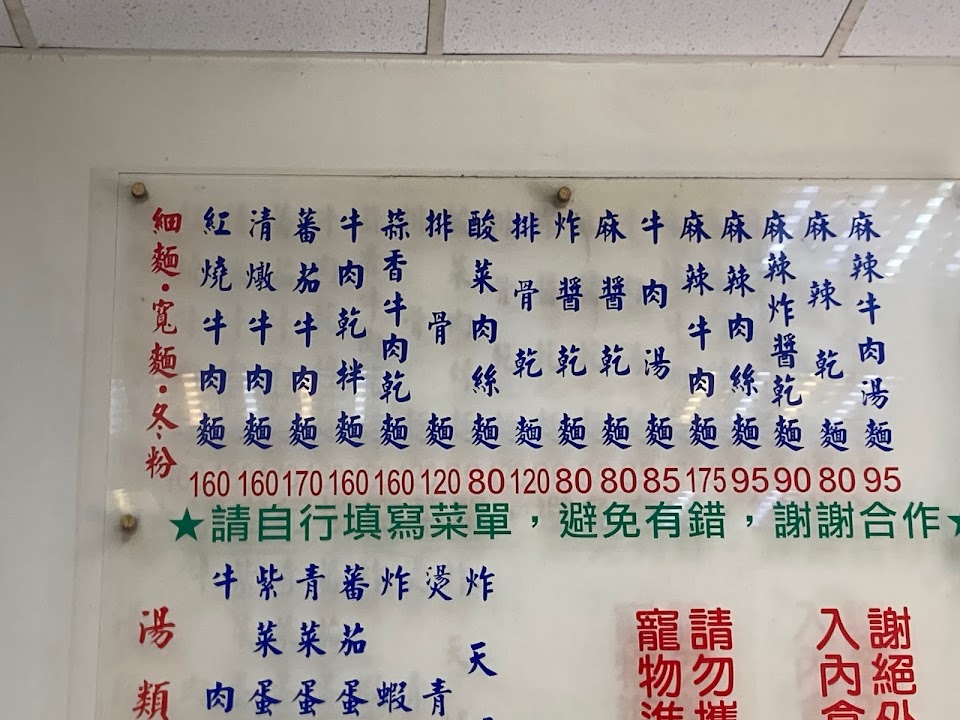 細麵·寬麵·冬粉
紅燒牛肉麵 160
清燉牛肉麵 160
蕃茄牛肉麵 170
牛肉乾拌麵 160
蒜香牛肉乾麵 160
排骨麵 120
酸菜肉絲麵 80
排骨乾麵 120
炸醬乾麵 80
麻醬乾麵 80
牛肉湯麵 85
麻辣牛肉麵 175
麻辣肉絲麵 95
麻辣炸醬乾麵 90
麻辣乾麵 80
麻辣牛肉湯麵 95
★請自行填寫菜單，避免有錯，謝謝合作★
湯類
牛肉
紫菜蛋
青菜蛋
蕃茄蛋
炸蝦
燙青
炸天
請勿攜
寵物進
謝絕外
入內食